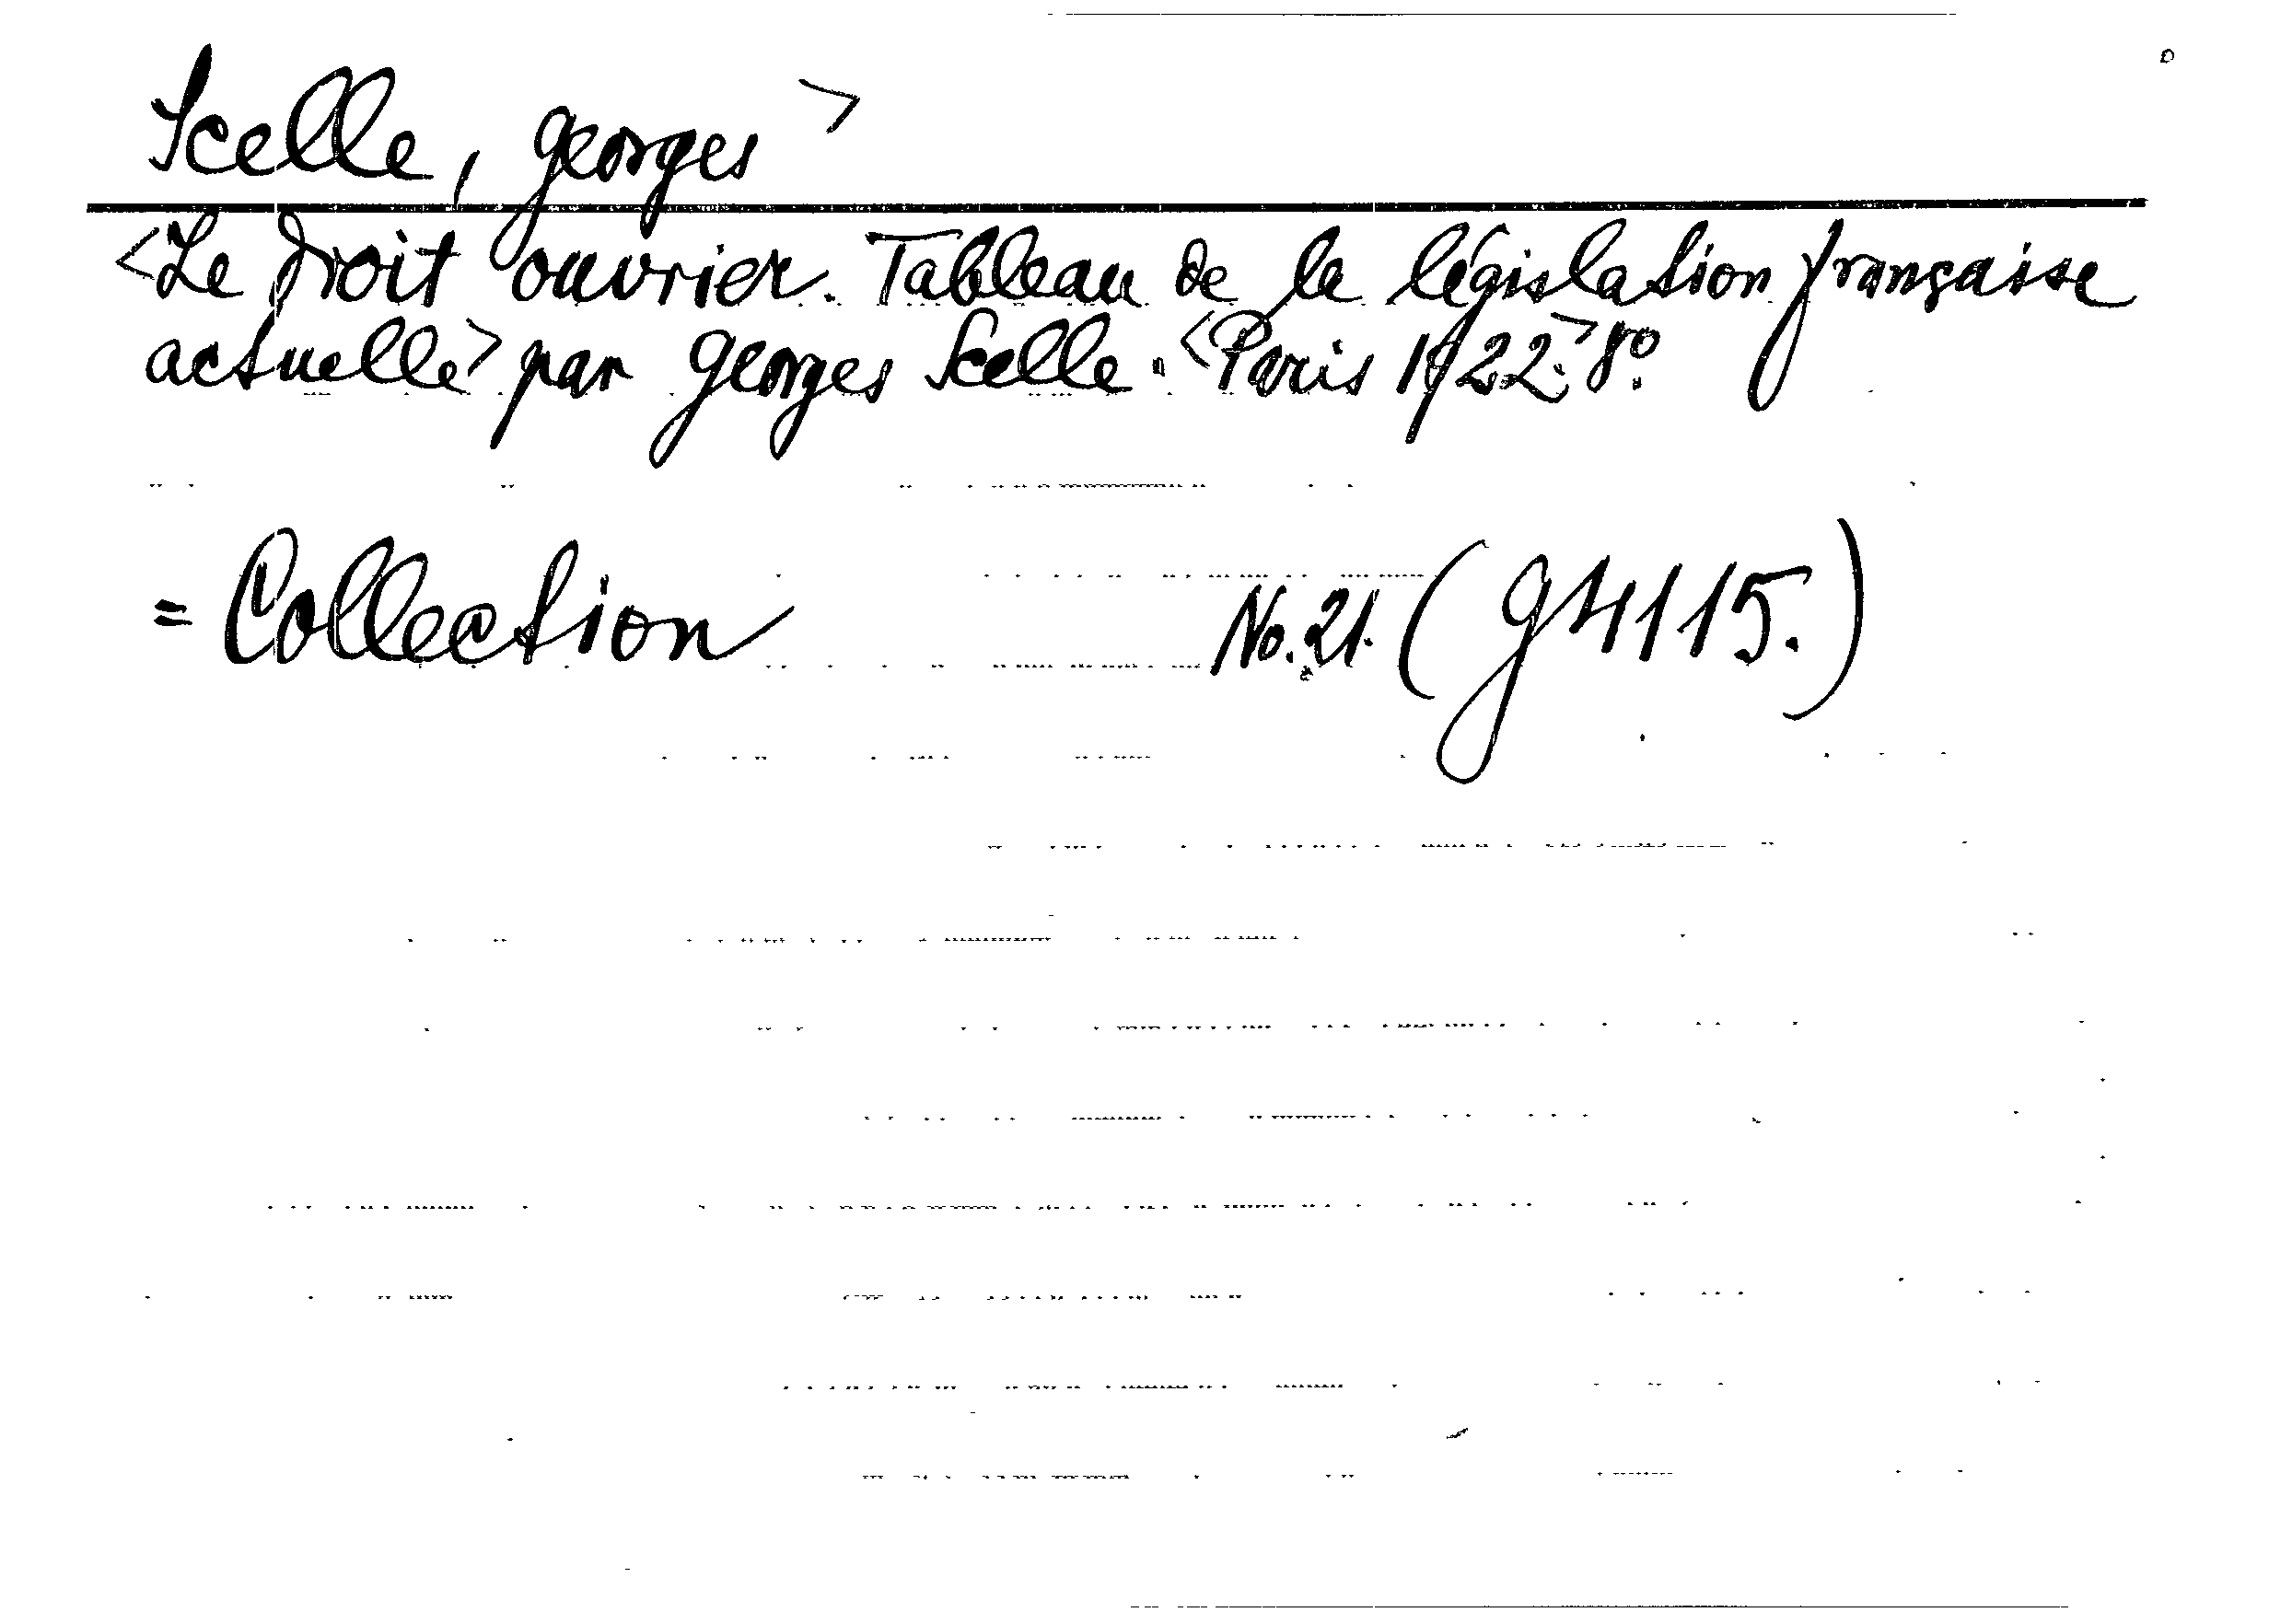 Scelle, Georges>
<Le Droit ouvrier. Tableau de la législation française
actuelle> par Georges Scelle. <Paris 1922.> 8º.
= Collection No. 21. (G4115.)